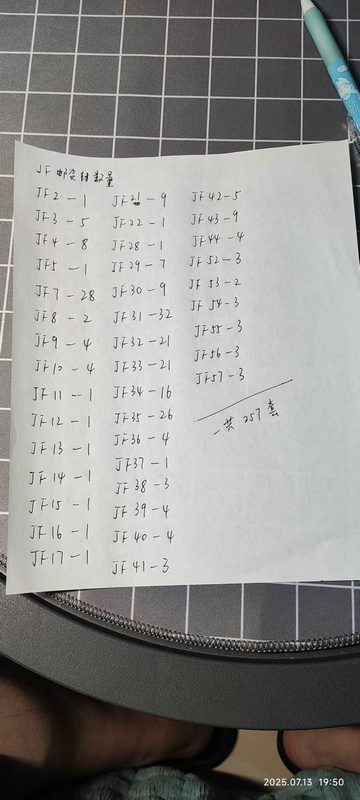 JF 邮资封数量
JF2 - 1
JF3 - 5
JF4 - 8
JF5 - 1
JF7 - 28
JF8 - 2
JF9 - 4
JF10 - 4
JF11 - 1
JF12 - 1
JF13 - 1
JF14 - 1
JF15 - 1
JF16 - 1
JF17 - 1
JF21 - 9
JF22 - 1
JF28 - 1
JF29 - 7
JF30 - 9
JF31 - 32
JF32 - 21
JF33 - 21
JF34 - 16
JF35 - 26
JF36 - 4
JF37 - 1
JF38 - 3
JF39 - 4
JF40 - 4
JF41 - 3
JF42 - 5
JF43 - 9
JF44 - 4
JF52 - 3
JF53 - 2
JF54 - 3
JF55 - 3
JF56 - 3
JF57 - 3
一共 257 套
2025.07.13 19:50